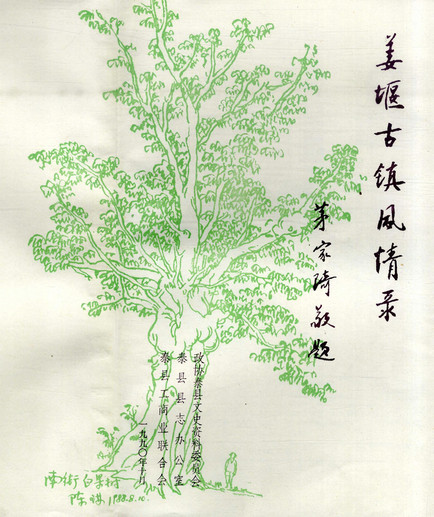 姜堰古镇风情录
茅家琦敬题
政协泰县文史资料委员会
泰县县志办公室
泰县工商业联合会
一九九〇年十月
南街白果树
1988.8.10.